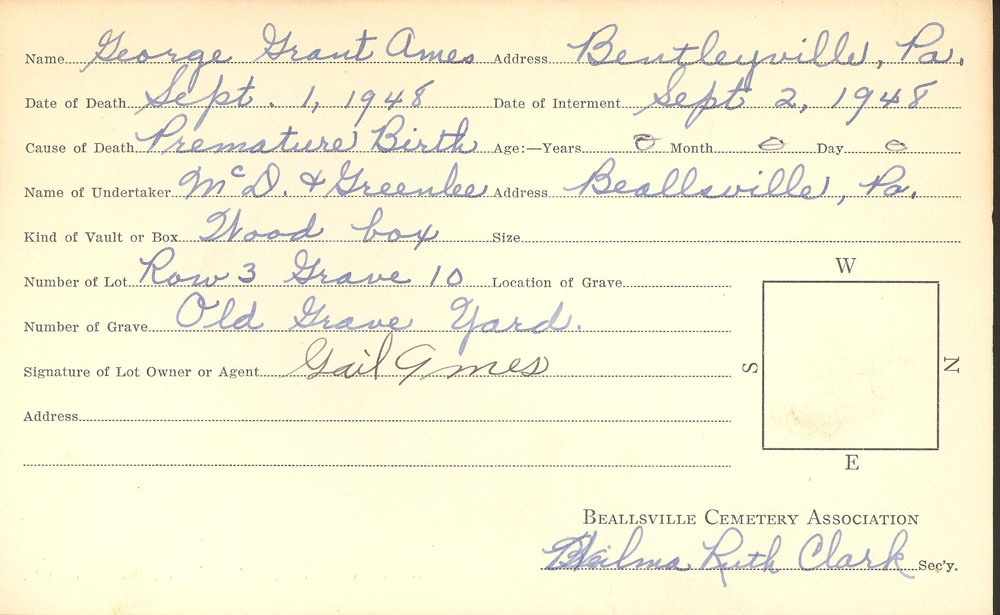 Name George Grant Ames Address Bentleyville, Pa.
Date of Death Sept. 1, 1948 Date of Interment Sept 2, 1948
Cause of Death Premature Birth Age:—Years 0 Month 0 Day 0
Name of Undertaker McD. & Greenlee Address Beallsville, Pa.
Kind of Vault or Box Wood box Size
Number of Lot Row 3 Grave 10 Location of Grave
Number of Grave Old Grave Yard.
Signature of Lot Owner or Agent Gail Ames
Address
W
S
N
E
BEALLSVILLE CEMETERY ASSOCIATION
Ruth Clark Sec'y.